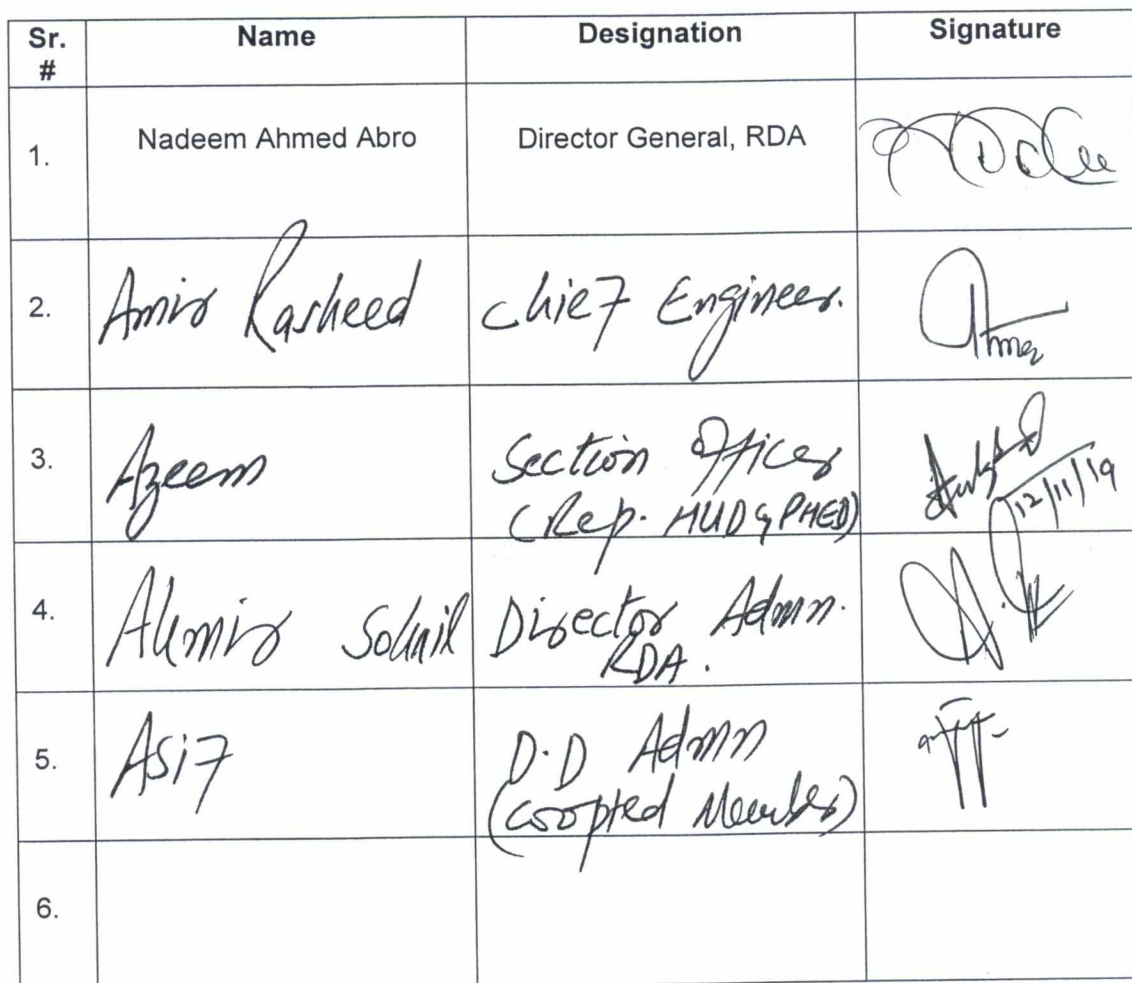 Sr. # Name Designation Signature
1. Nadeem Ahmed Abro Director General, RDA
2. Amir Rasheed Chief Engineer.
3. Azeem Section Officer
(Rep. HUD & PHED) 12/11/19
4. Director Admn.
RDA.
5. Asif D.D Admn
(coopted Member)
6.